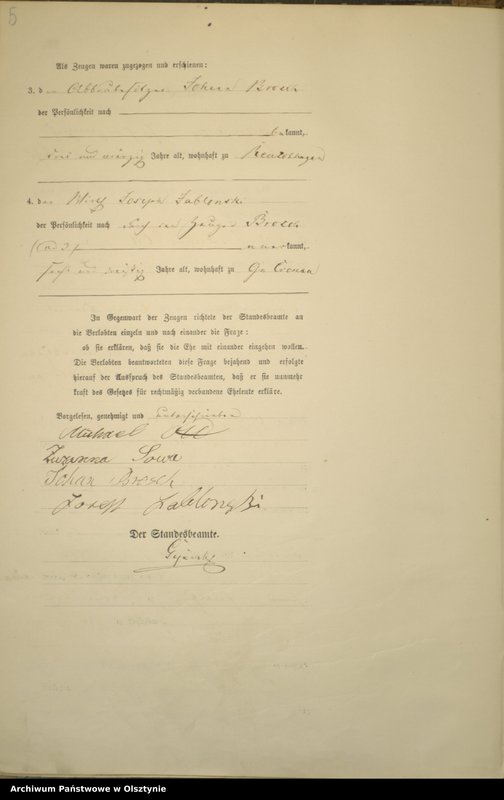 5
Als Zeugen waren zugezogen und erschienen:
3. d Johann Brosch
der Persönlichkeit nach
bekannt,
drei und vierzig Jahre alt, wohnhaft zu
4. der Wirth Joseph Jablonski
der Persönlichkeit nach durch den Zeugen Brosch
(ad 3) anerkannt,
sechs und Jahre alt, wohnhaft zu Gr.
In Gegenwart der Zeugen richtete der Standesbeamte an
die Verlobten einzeln und nach einander die Frage:
ob sie erklären, daß sie die Ehe mit einander eingehen wollen.
Die Verlobten beantworteten diese Frage bejahend und erfolgte
hierauf der Ausspruch des Standesbeamten, daß er sie nunmehr
kraft des Gesetzes für rechtmäßig verbundene Eheleute erkläre.
Vorgelesen, genehmigt und unterschrieben
Michael
Zuzanna Sowa
Johan Brosch
Josef Jablonski
Der Standesbeamte.
Archiwum Państwowe w Olsztynie